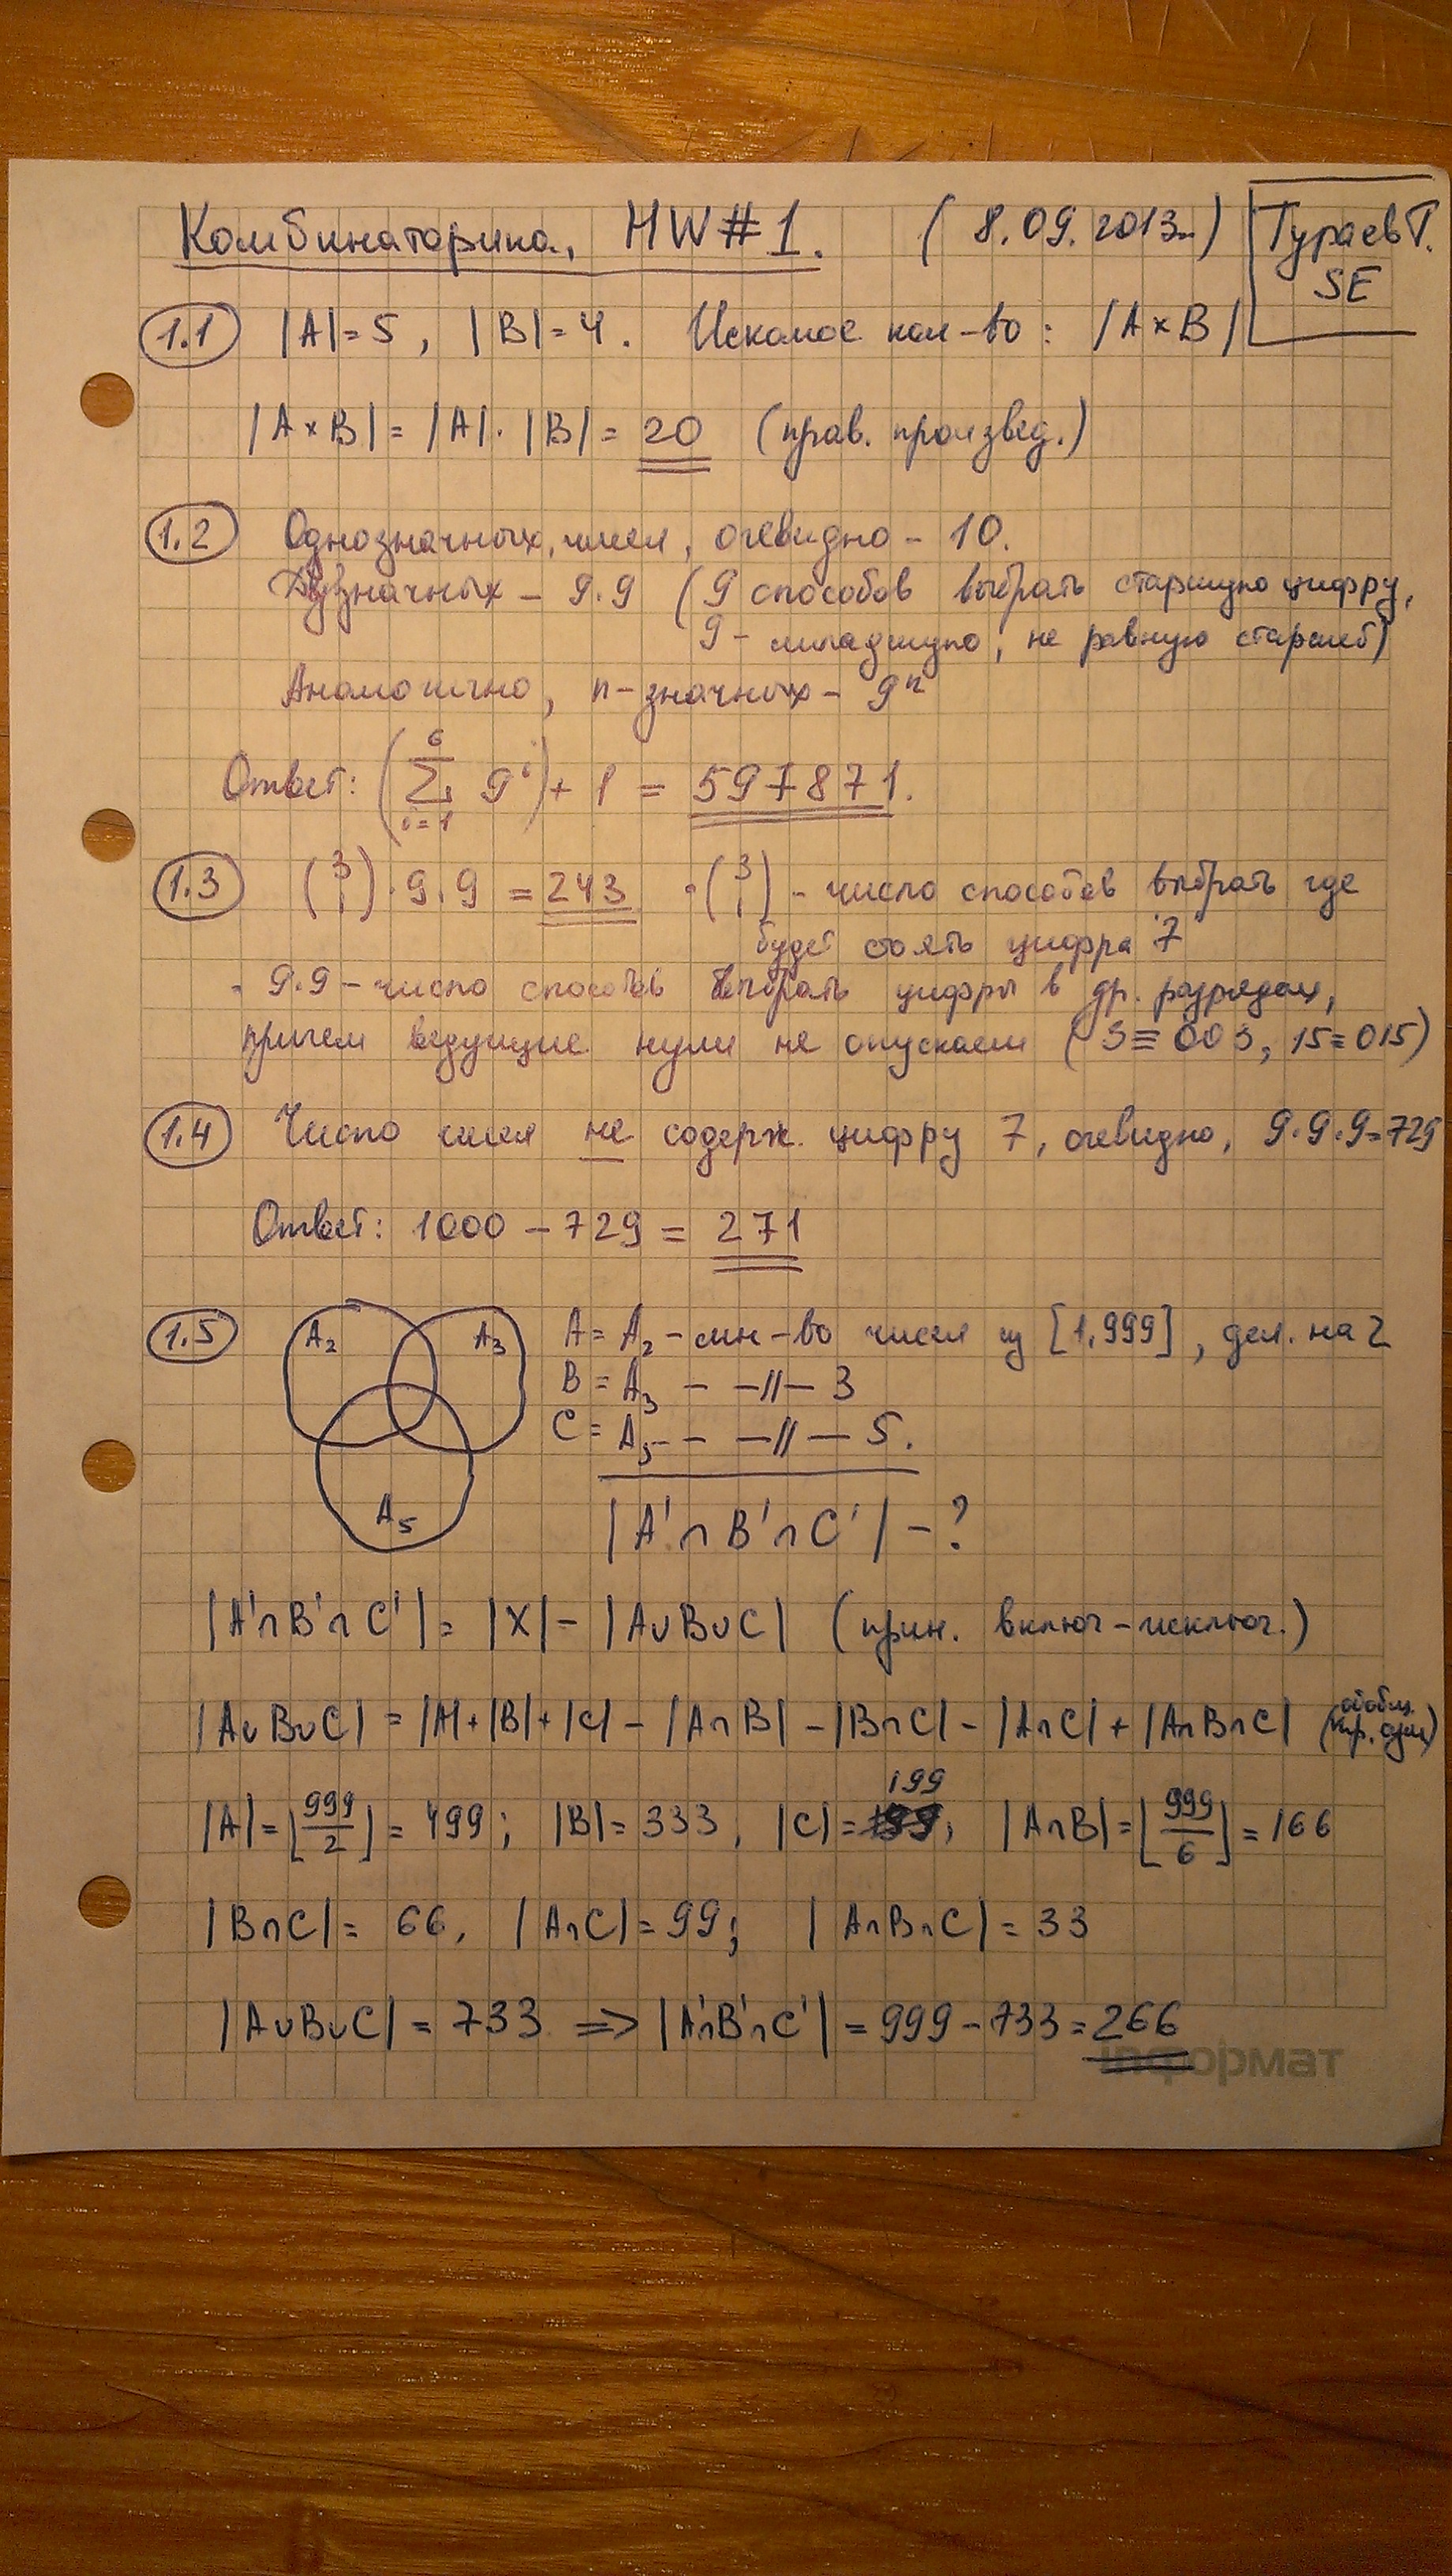 Комбинаторика, HW#1. (8.09.2013г.) Тураев Т.
SE
1.1 |A|=5, |B|=4. Искомое кол-во: |A×B|
|A×B| = |A|·|B| = 20 (прав. произвед.)
1.2 Однозначных чисел, очевидно - 10.
Двузначных - 9·9 (9 способов выбрать старшую цифру,
9 - младшую, не равную старшей)
Аналогично, n-значных - 9ⁿ
Ответ: (∑_{i=1}^{6} 9^i) + 1 = 597871.
1.3 (3 1)·9·9 = 243 · (3 1) - число способов выбрать где
будет стоять цифра 7
· 9·9 - число способов выбрать цифры в др. разрядах,
причем ведущие нули не опускаем (3≡003, 15≡015)
1.4 Число чисел не содерж. цифру 7, очевидно, 9·9·9=729
Ответ: 1000 - 729 = 271
1.5 A₂ A₃ A = A₂ - мн-во чисел из [1,999], дел. на 2
B = A₃ - -//- 3
C = A₅ - - -//- 5.
A₅
|A'∩B'∩C'| - ?
|A'∩B'∩C'| = |X| - |A∪B∪C| (прин. включ-исключ.)
|A∪B∪C| = |A|+|B|+|C| - |A∩B| - |B∩C| - |A∩C| + |A∩B∩C| (обобщ. пр. сумм)
|A|=⌊999/2⌋ = 499; |B|=333, |C|=199; |A∩B|=⌊999/6⌋=166
|B∩C|= 66, |A∩C|=99; |A∩B∩C|=33
|A∪B∪C| = 733 => |A'∩B'∩C'| = 999-733=266
інформат